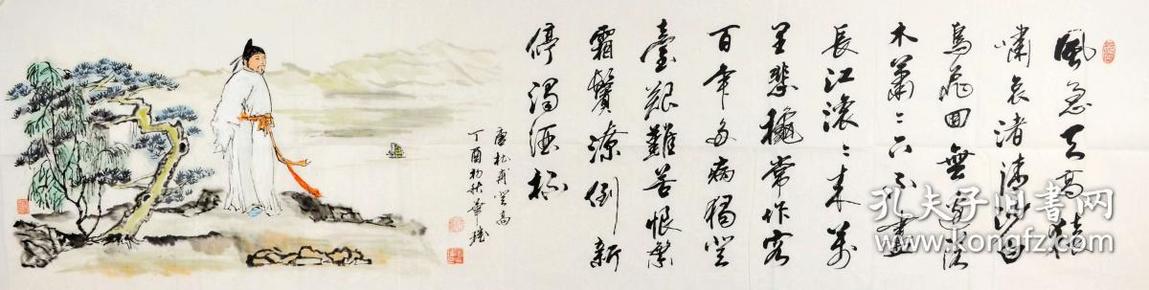 風急天高猿
嘯哀渚清沙白
鳥飛回無邊落
木蕭〻下不盡
長江滚〻来萬
里悲穐常作客
百年多病獨登
臺艱難苦恨繁
霜鬢潦倒新
停濁酒杯
唐杜甫登高
丁酉初秋
孔夫子旧书网
www.kongfz.com